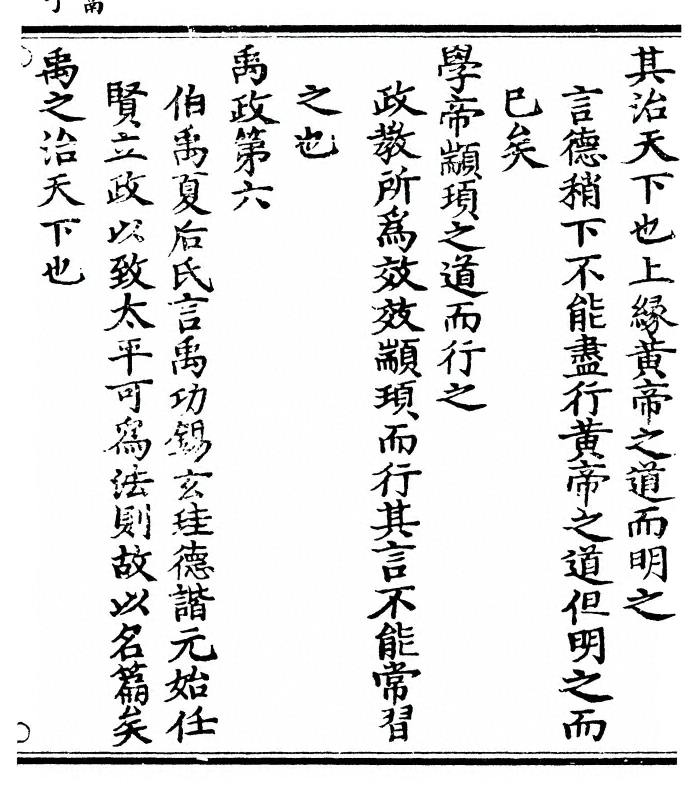 其治天下也上緣黃帝之道而明之
言德稍下不能盡行黃帝之道但明之而
巳矣
學帝顓頊之道而行之
政教所為效效顓頊而行其言不能常習
之也
禹政第六
伯禹夏后氏言禹功錫玄珪德諧元始任
賢立政以致太平可為法則故以名篇矣
禹之治天下也